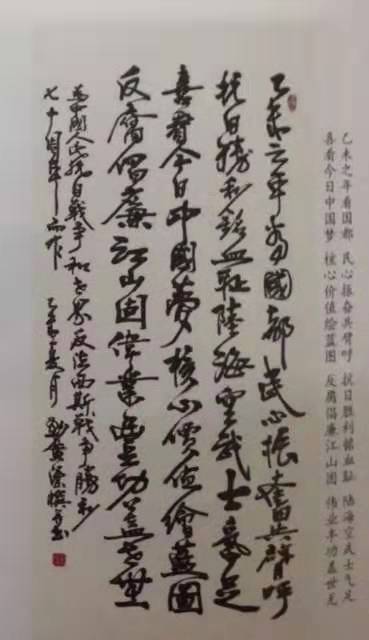 乙未之年看国都 民心振奋共臂呼 抗日胜利铭血耻 陆海空武士气足
喜看今日中国梦 核心价值绘蓝图 反腐倡廉江山固 伟业丰功盖世无
乙未之年看國都民心振奮共臂呼
抗日勝利銘血耻陸海空武士氣足
喜看今日中國夢核心價值繪藍圖
反腐倡廉江山固偉業豐功蓋世無
為中國人民抗日戰爭和世界反法西斯戰爭勝利
七十周年而作 乙未夏月